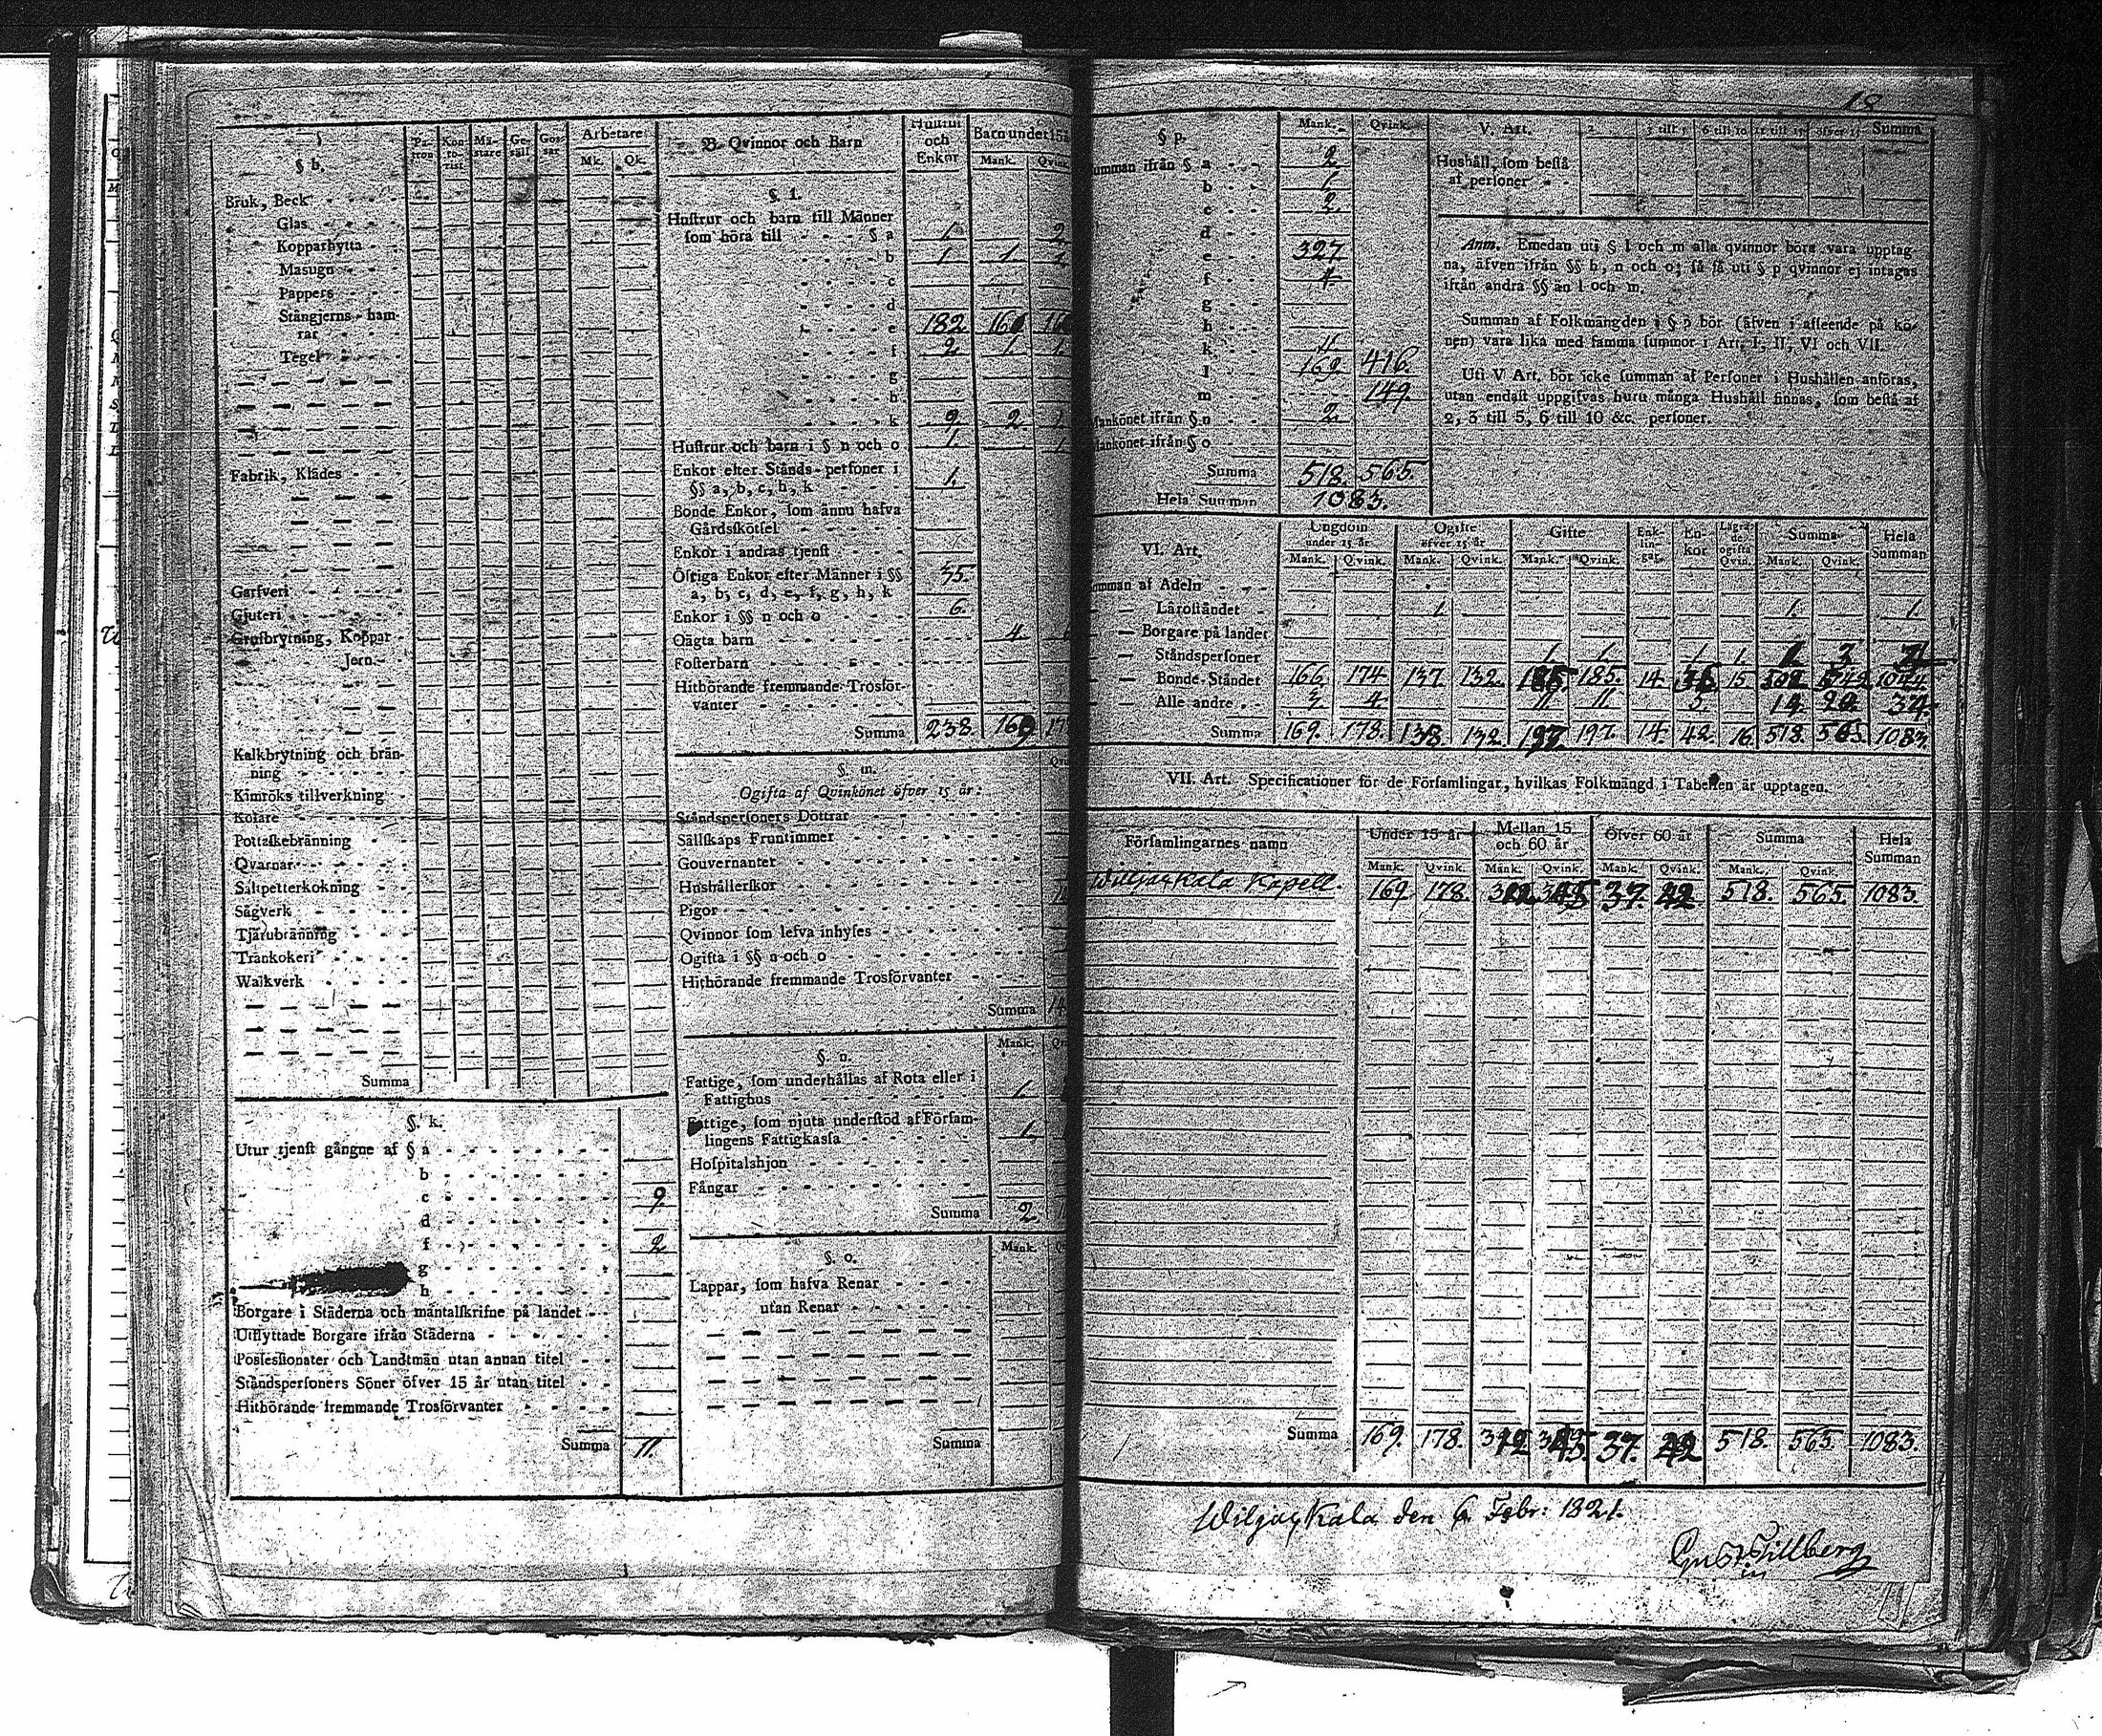 18
§ b.
Pa-
tron
Kon-
to-
rist
Mä-
stare
Ge-
säll
Gos-
sar
Arbetare
Mk.
Qk.
Bruk, Beck
Glas
Kopparhytta
Masugn
Pappers
Stångjerns-ham-
rar
Tegel
Fabrik, Klädes
Garfveri
Gjuteri
Grufbrytning, Koppar
Jern
Kalkbrytning och brän-
ning
Kimröks tillverkning
Kolare
Pottaskebränning
Qvarnar
Salpetterkokning
Sågverk
Tjärubränning
Trankokeri
Walkverk
Summa
§. k.
Utur tjenst gångne af § a
b
c 9.
d
f 2
g
h
Borgare i Städerna och mantalskrifne på landet
Utflyttade Borgare ifrån Städerna
Possessionater och Landtmän utan annan titel
Ståndspersoners Söner öfver 15 år utan titel
Hithörande fremmande Trosförvanter
Summa 11.
B. Qvinnor och Barn
Hustrur
och
Enkor
Barn under 15 å
Mank. Qvink
§. l.
Hustrur och barn till Männer
som höra till § a 1. 2
b 1 1
c
d
e 182 160 16
f 2. 1. 1.
g
h
k 9. 2 1.
Hustrur och barn i § n och o 1. 1.
Enkor efter Stånds-personer i
§§ a, b, c, h, k 1.
Bonde Enkor, som ännu hafva
Gårdsskötsel
Enkor i andras tjenst
Öfriga Enkor efter Männer i §§
a, b, c, d, e, f, g, h, k 35.
Enkor i §§ n och o 6.
Oägta barn 4
Fosterbarn
Hithörande fremmande Trosför-
vanter
Summa 238 169 17
§. m.
Ogifta af Qvinkönet öfver 15 år:
Ståndspersoners Döttrar
Sällskaps Fruntimmer
Gouvernanter
Hushållerskor
Pigor
Qvinnor som lefva inhyses
Ogifta i §§ n och o
Hithörande fremmande Trosförvanter
Summa 14
§. n.
Mank.
Fattige, som underhållas af Rota eller i
Fattighus 1.
Fattige, som njuta understöd af Försam-
lingens Fattigkassa 1.
Hospitalshjon
Fångar
Summa 2
§. o.
Mank.
Lappar, som hafva Renar
utan Renar
Summa
§ p.
Mank. Qvink.
umman ifrån § a 2
b 1
c 2.
d
e 327
f 4
g
h
k 11
l 169. 416.
m 149.
Mankönet ifrån § n 2.
Mankönet ifrån § o
Summa 518. 565.
Hela Summan 1083.
V. Art.
2 3 till 5 6 till 10 11 till 15 öfver 15 Summa
Hushåll, som bestå
af personer
Anm. Emedan uti § l och m alla qvinnor böra vara upptag-
na, äfven ifrån §§ h, n och o; så få uti § p qvinnor ej intagas
ifrån andra §§ än l och m.
Summan af Folkmängden i § p bör (äfven i afseende på kö-
nen) vara lika med samma summor i Art. I, II, VI och VII.
Uti V Art. bör icke summan af Personer i Hushållen anföras,
utan endast uppgifvas huru många Hushåll finnas, som bestå af
2, 3 till 5, 6 till 10 &c. personer.
VI. Art.
Ungdom
under 15 år
Ogifte
öfver 15 år
Gifte
Enk-
lin-
gar
En-
kor
Lägra-
de
ogifta
Qvin.
Summa
Hela
Summan
Mank. Qvink. Mank. Qvink. Mank. Qvink. Mank. Qvink.
umman af Adeln
— Läroståndet 1 1. 1.
— Borgare på landet
— Ståndspersoner 1 1. 1 1.
— Bonde-Ståndet 166 174 137 132. 185 185. 14. 36 15 1044
— Alle andre 3 4 11 11. 5. 14 20. 34.
Summa 169. 178. 138. 132. 197. 197. 14 42. 16. 518. 565. 1083.
VII. Art. Specificationer för de Församlingar, hvilkas Folkmängd i Tabellen är upptagen.
Församlingarnes namn
Under 15 år
Mellan 15
och 60 år
Öfver 60 år
Summa
Hela
Summan
Mank. Qvink. Mank. Qvink. Mank. Qvink. Mank. Qvink.
Wiljackala Kapell. 169. 178. 312 345 37. 42 518. 565. 1083.
Summa 169. 178. 312 345. 37. 42 518. 565. 1083.
Wiljackala den 6 Febr: 1821.
Gust. Tillberg